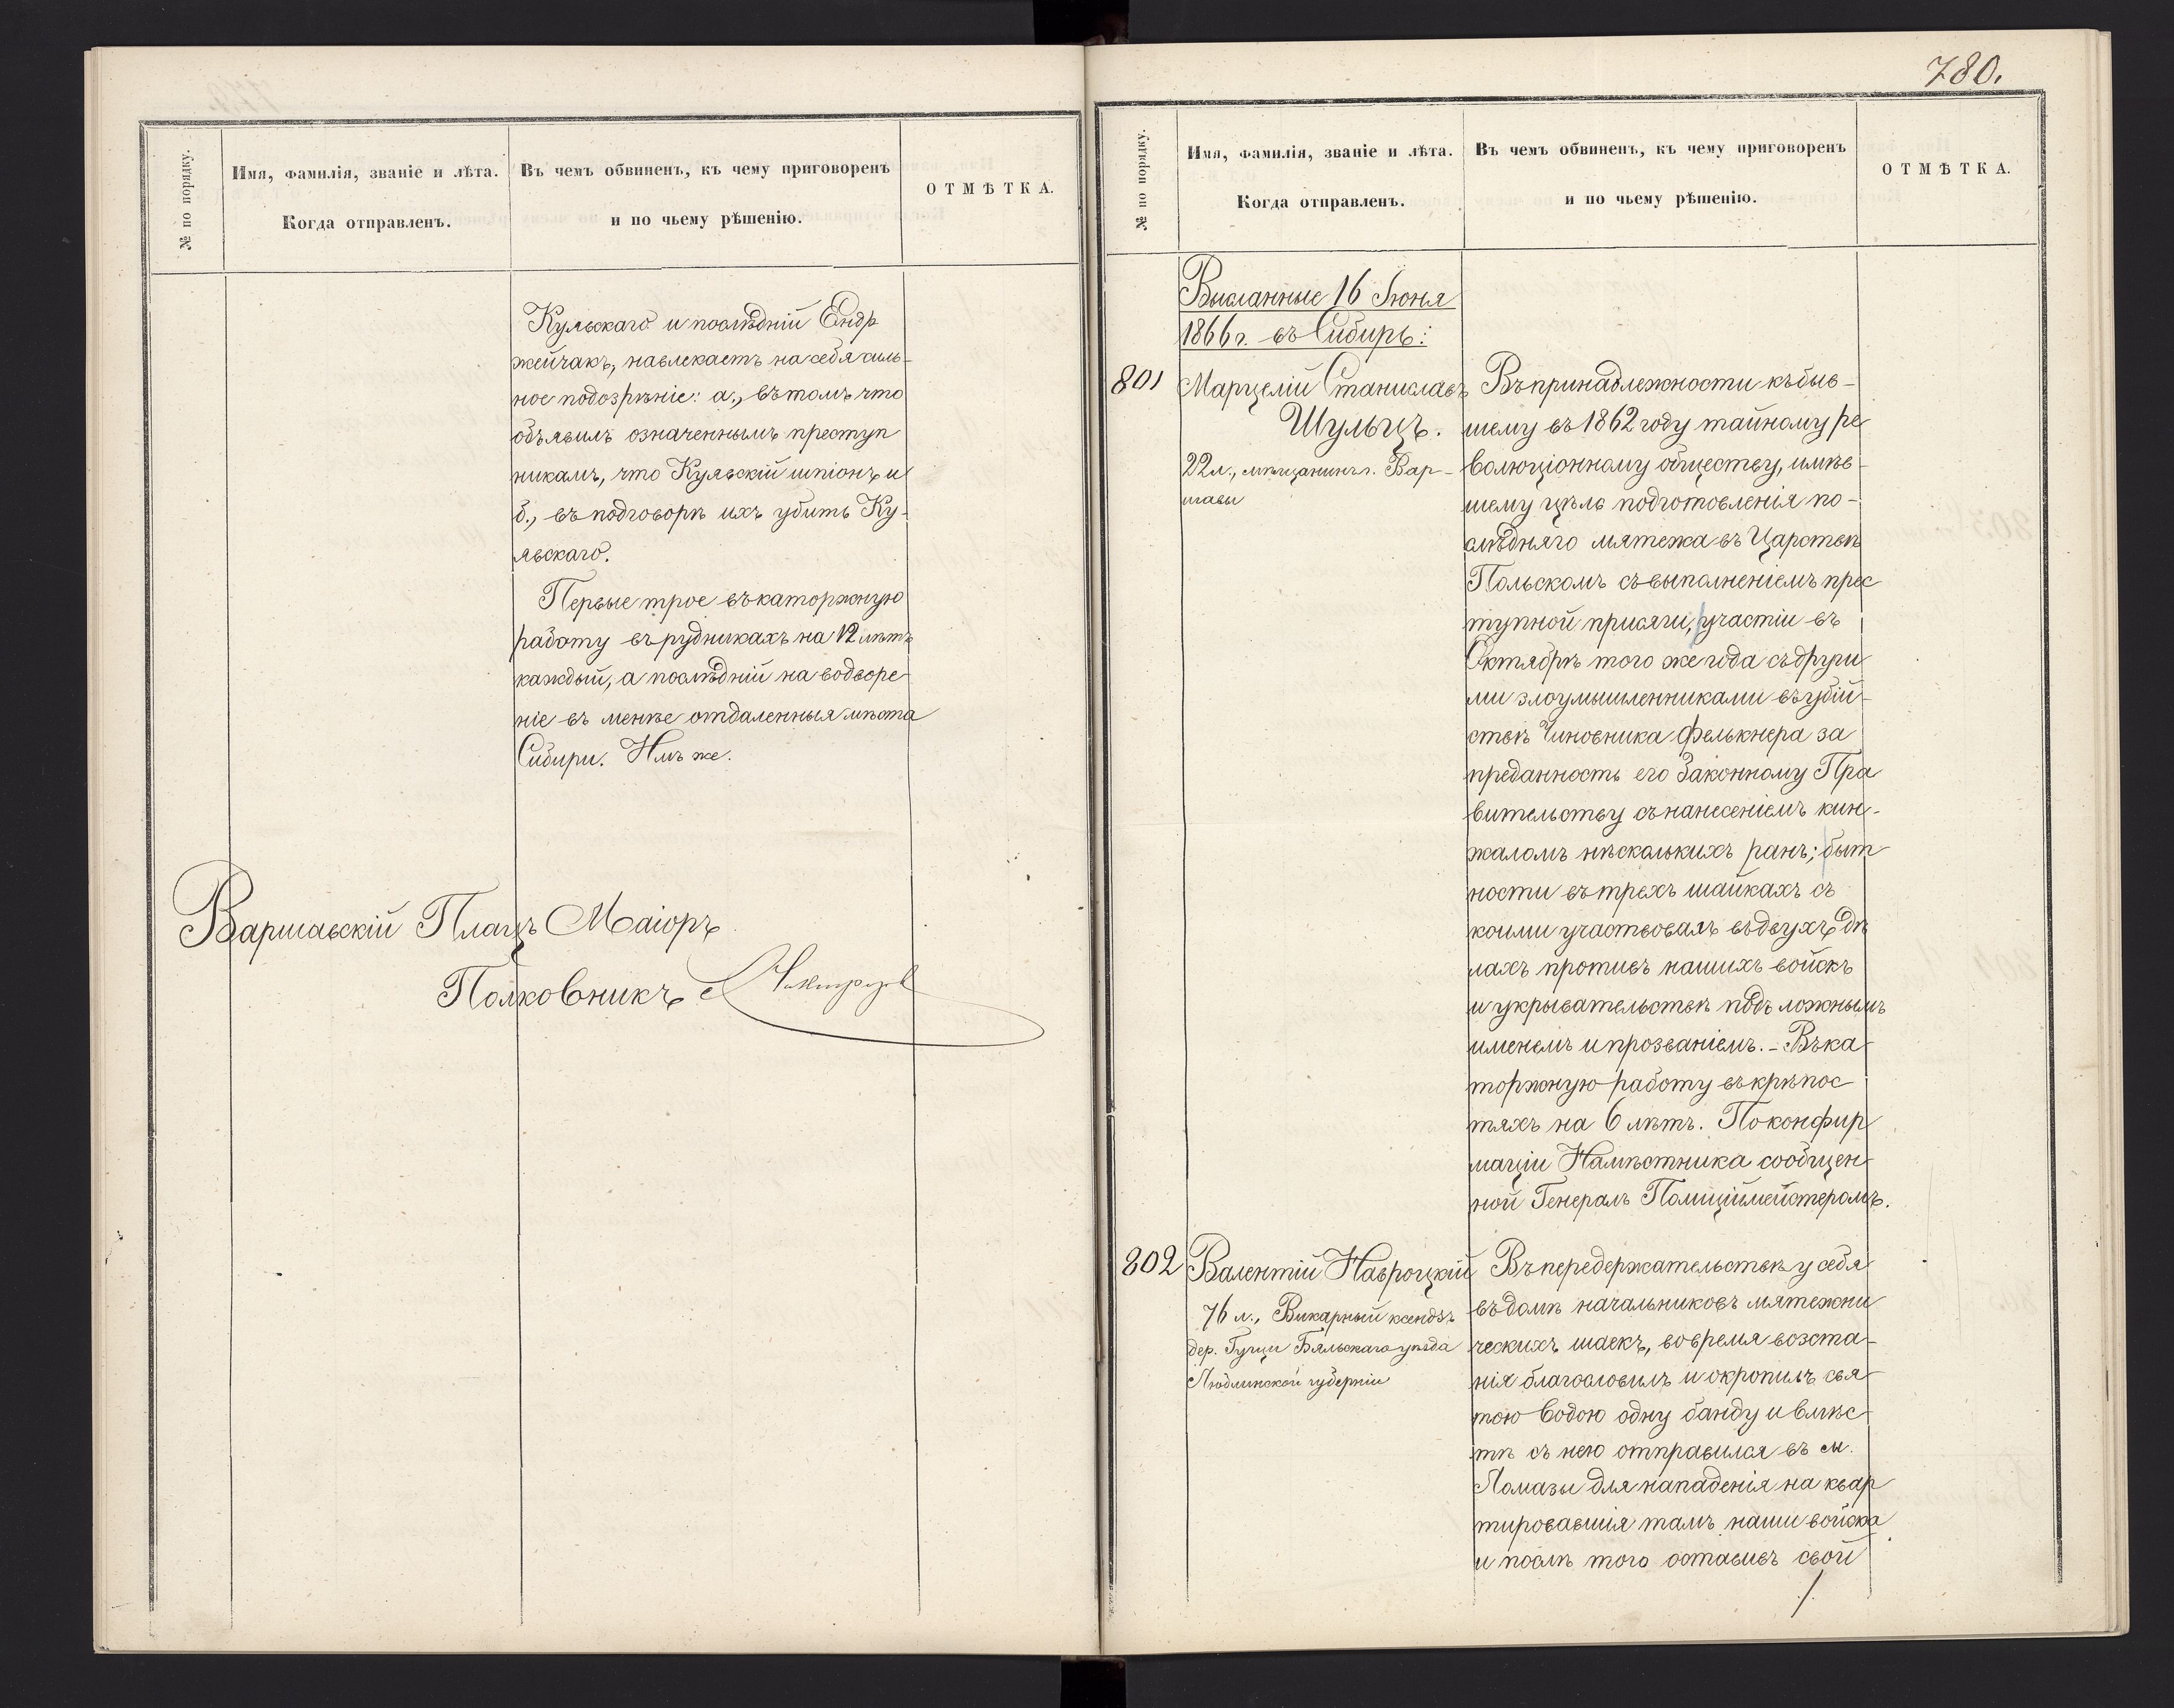 № по порядку.
Имя, фамилія, званіе и лѣта.
Когда отправленъ.
Въ чемъ обвиненъ, къ чему приговоренъ
и по чьему рѣшенію.
ОТМѢТКА.
Кульскаго и послѣдній Ендр
жейчакъ, навлекаетъ на себя силь-
ное подозрѣніе: а., въ томъ что
объявилъ означеннымъ преступ
никамъ, что Кульскій шпіонъ, и
б., въ подговорѣ ихъ убить Ку-
льскаго.
Первые трое въ каторжную
работу въ рудникахъ на 12 лѣтъ
каждый, а послѣдній на водворе
ніе въ менѣе отдаленныя мѣста
Сибири. Имъ же.
Варшавскій Плацъ Маіоръ
Полковникъ
780.
№ по порядку.
Имя, фамилія, званіе и лѣта.
Когда отправленъ.
Въ чемъ обвиненъ, къ чему приговоренъ
и по чьему рѣшенію.
ОТМѢТКА.
Высланные 16 Іюня
1866 г. въ Сибирь:
801
Марцелій Станиславъ
Шульцъ.
22 л., мѣщанинъ г. Вар-
шавы
Въ принадлежности къ быв-
шему въ 1862 году тайному ре
волюціонному обществу, имѣв-
шему цѣль подготовленія по-
слѣдняго мятежа въ Царствѣ
Польскомъ съ выполненіемъ прес
тупной присяги, участіи въ
Октябрѣ того же года съ други
ми злоумышленниками въ убій-
ствѣ Чиновника Фелькнера за
преданность его Законному Пра
вительству съ нанесеніемъ кин-
жаломъ нѣсколькихъ ранъ; быт
ности въ трехъ шайкахъ съ
коими участвовалъ въ двухъ дѣ
лахъ противъ нашихъ войскъ
и укрывательствѣ подъ ложнымъ
именемъ и прозваніемъ. - Въ ка
торжную работу въ крѣпос
тяхъ на 6 лѣтъ. По конфир
маціи Намѣстника сообщен
ной Генералъ Полиціймейстеромъ.
802
Валентій Навроцкій
76 л., Викарный ксендзъ
дер. Гущи Бяльскаго уѣзда
Люблинской губерніи
Въ передержательствѣ у себя
въ домѣ начальниковъ мятежни
ческихъ шаекъ, во время возста-
нія благословилъ и окропилъ свя-
тою водою одну банду и вмѣс-
тѣ съ нею отправился въ м.
Ломазы для нападенія на квар
тировавшія тамъ наши войска
и послѣ того оставивъ свой